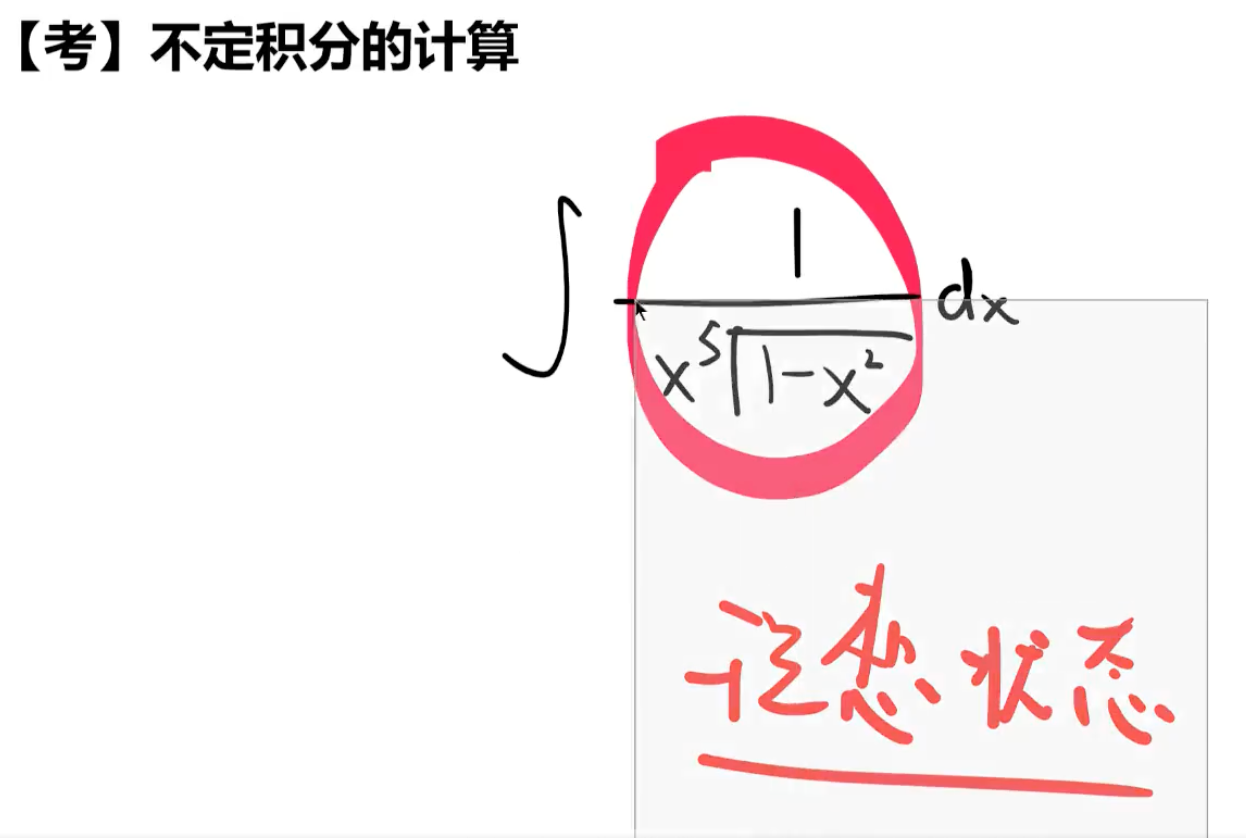 【考】不定积分的计算
∫ 1/(x⁵√(1-x²)) dx
状态